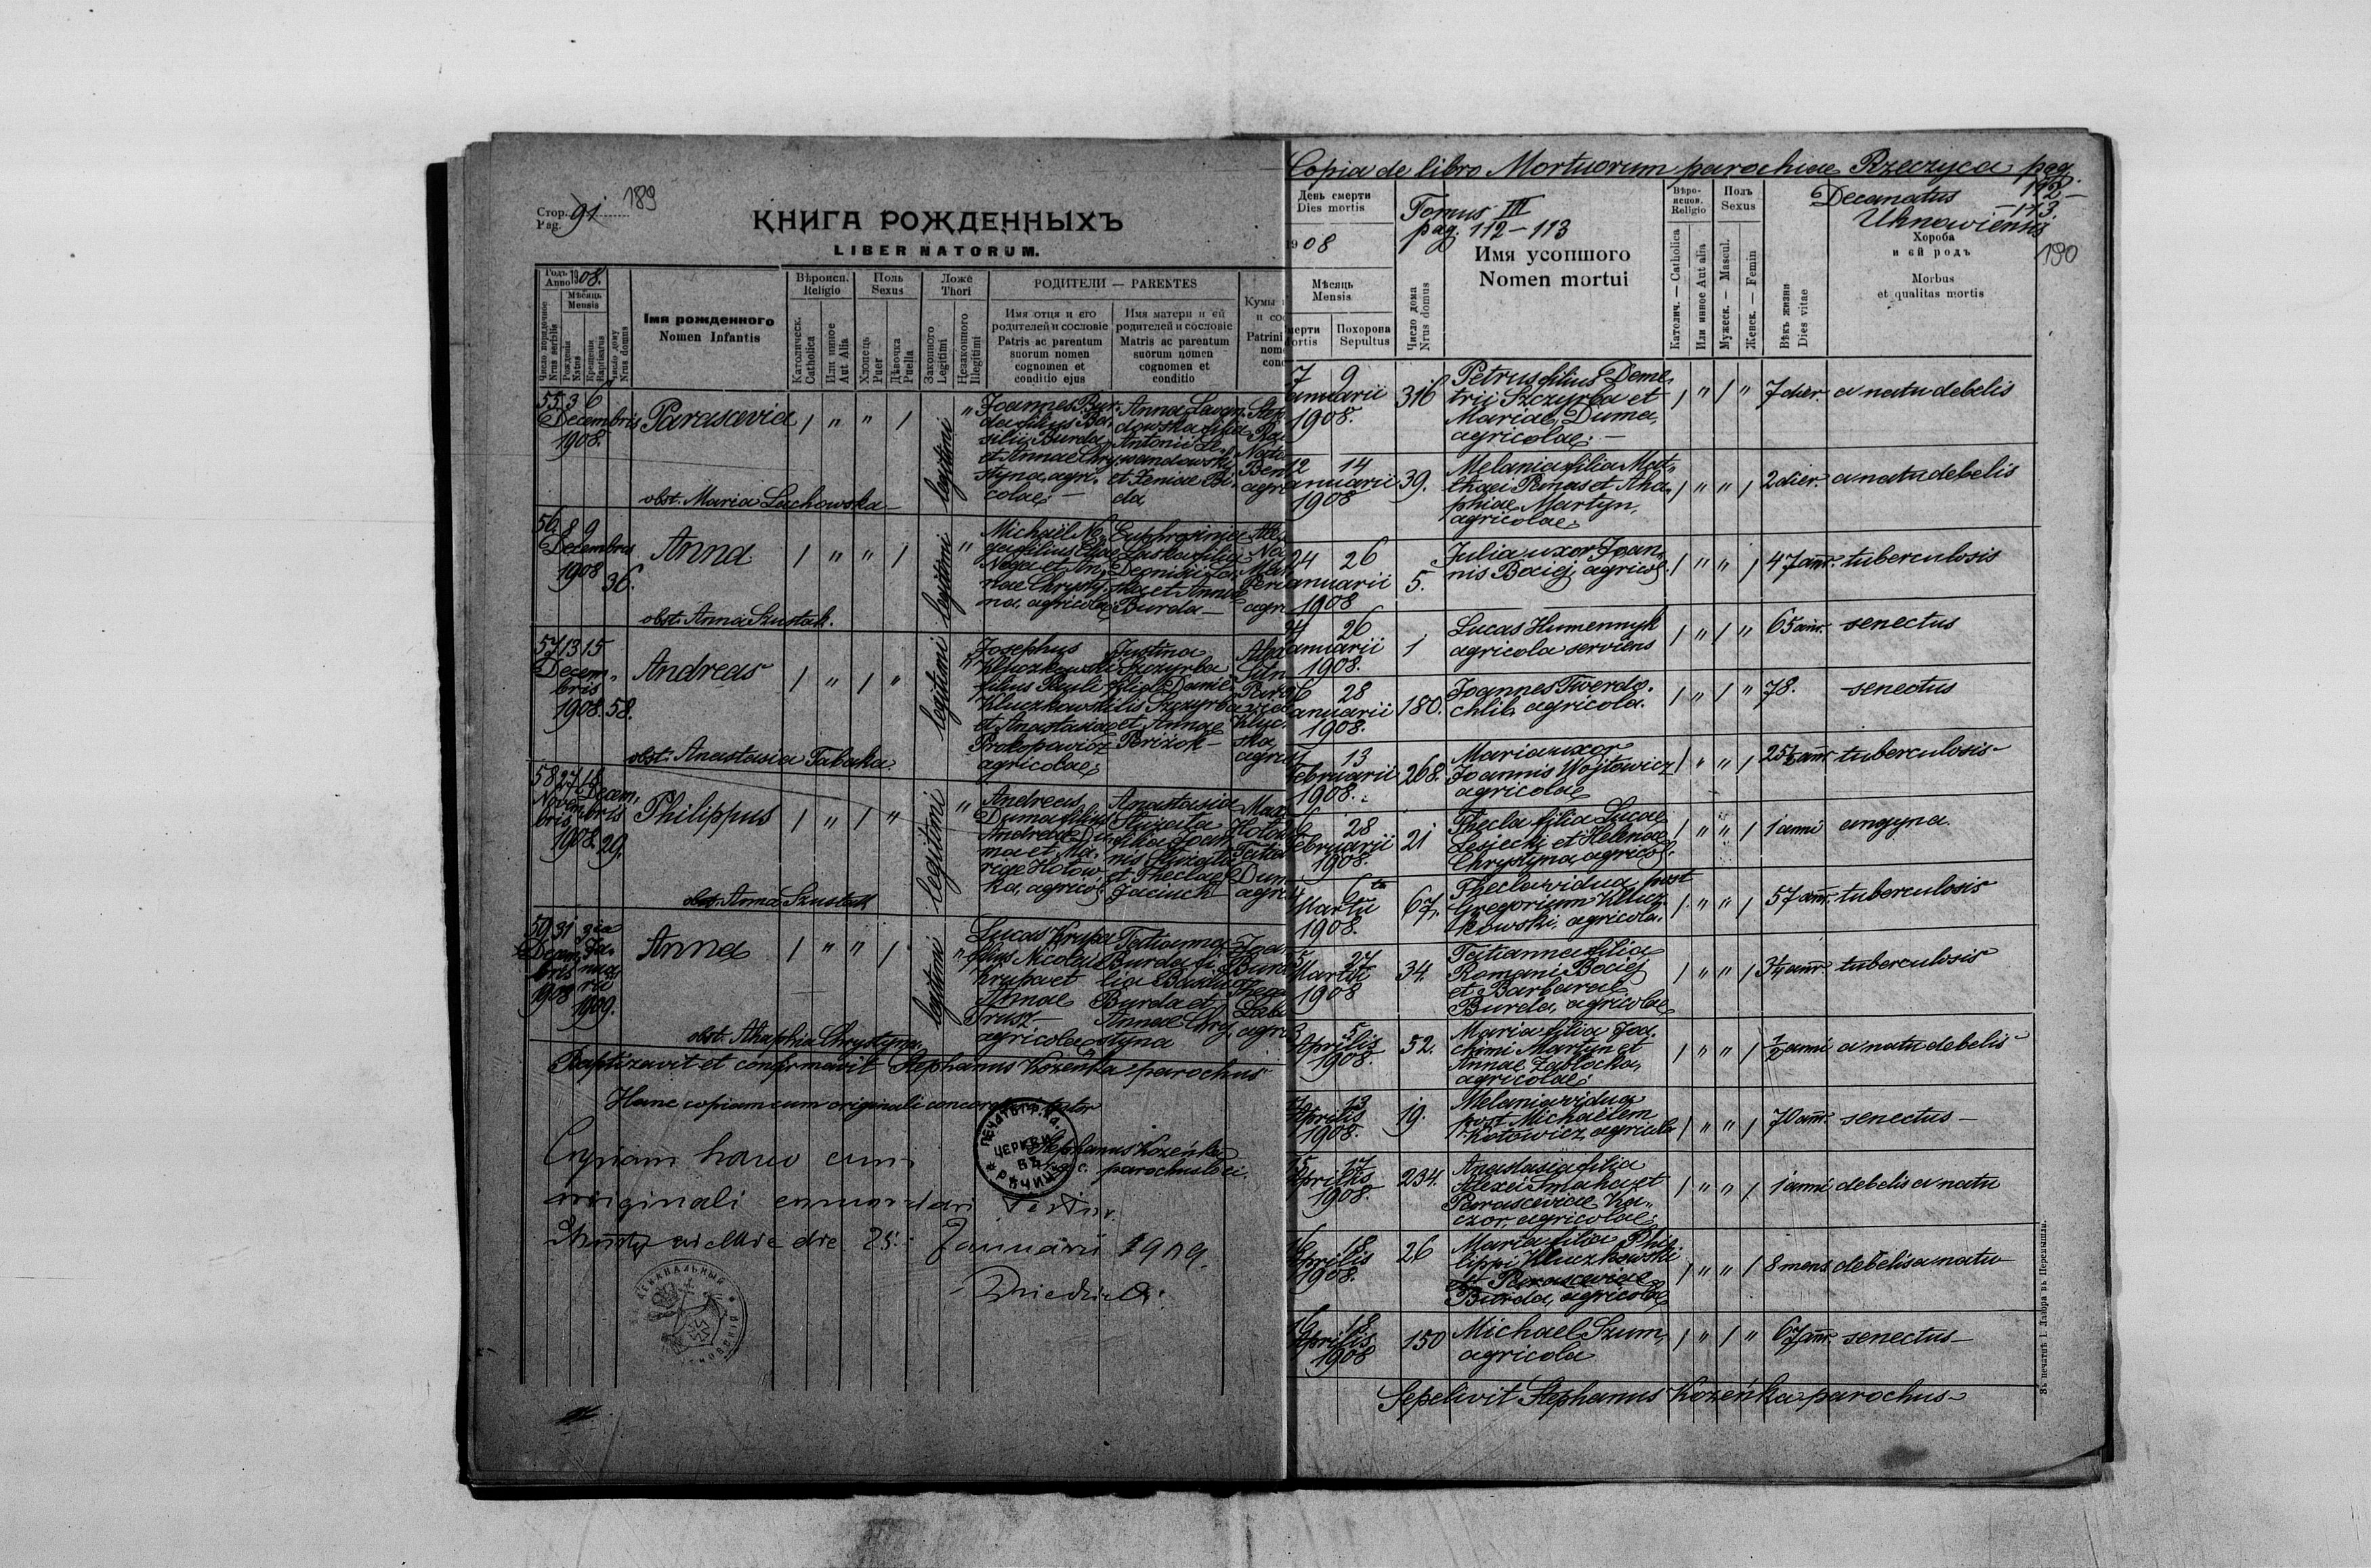 Стор. 91 189
Pag.
КНИГА РОЖДЕННЫХЪ
LIBER NATORUM.
Годъ Anno 1908.
Мѣсяць
Mensis
Число порядочное
Nrus serialis
Рожденія
Natus
Крещенія
Baptisatus
Число дому
Nrus domus
Імя рожденного
Nomen Infantis
Вѣроисп.
Religio
Католическ.
Catholica
Или инное
Aut Alia
Полъ
Sexus
Хлопець
Puer
Дѣвочка
Puella
Ложе
Thori
Законного
Legitimi
Незаконного
Illegitimi
РОДИТЕЛИ — PARENTES
Имя отця и его
родителей и сословіе
Patris ac parentum
suorum nomen
cognomen et
conditio ejus
Имя матери и ей
родителей и сословіе
Matris ac parentum
suorum nomen
cognomen et
conditio
Кумы
и со
Patrini
nom
con
55 3 6
Decembris
1908.
Parascevia
/ " " /
legitimi "
Joannes Bur-
da filius Ba-
silii Burda
et Annae Chry-
styna, agri-
colae; —
Anna Lewan-
dowska filia
Antonii Le-
wandowski
et Xeniae Bi-
da,
obst. Maria Lachowska —
56 8 9
Decembris
1908 36.
Anna
/ " " /
legitimi "
Michaël No-
ga filius Eliae
Noga et An-
nae Chrysty-
na, agricolae
Euphrosinia
Laska filia
Dionisii La-
ska et Annae
Burda —
obst. Anna Szustak.
57 13 15
Decem-
bris
1908. 58.
Andreas
/ " / "
legitimi "
Josephus
Kluczkowski
filius Pauli
Kluczkowski
et Anastasiae
Prokopowicz
agricolae;
Justina
Szczyrba
filia Danie-
lis Szczyrba
et Annae
Perižok —
obst. Anastasia Tabaka.
58 27 14
Novem- Decem-
bris bris
1908. 29.
Philippus
/ " / "
legitimi "
Andreas
Duma filius
Andreae Du-
ma et Ma-
riae Kotow-
ka, agricol.
Anastasia
filia Joan-
nis
et Theclae
Jaciuck —
obst. Anna Szustak
59 31 3ia
Decem- Ja-
bris nua-
1908 rii
1909.
Anna
/ " " /
legitimi "
Lucas Krupa
filius Nicolai
Krupa et
Annae
Trusz —
agricolae
Tatianna
Burda fi-
lia Basilii
Burda et
Annae Chry-
styna
obst. Ahaphia Chrystyna.
Baptizavit et confirmavit Stephanus Kozeńka parochus
Hanc copiam cum originali concordare testor
Stephanus Kozeńka
parochus loci.
ЦЕРКВИ
ВЪ
РѢЧИЦИ
Copiam hanc cum
originali concordari testor.
die 25. Januarii 1909.
Copia de libro Mortuorum parochiae Rzeczyca pag.
112 —
— 113.
Decanatus
Uhnowiensis
190
Tomus III
pag. 112 — 113
День смерти
Dies mortis
1908
Мѣсяць
Mensis
мерти
ortis
Похорона
Sepultus
Число дома
Nrus domus
Имя усопшого
Nomen mortui
Вѣро-
испов.
Religio
Католич. — Catholica
Или инное Aut alia
Полъ
Sexus
Мужеск. — Mascul.
Женск. — Femin
Вѣкъ жизни
Dies vitae
Хороба
и ей родъ
Morbus
et qualitas mortis
7 9
anuarii
1908.
316
Petrus filius Deme-
trii Szczyrba et
Mariae Duma,
agricolae; —
/ " / "
7 dier. a natu debelis
12 14
anuarii
1908
39.
Melania filia Mat-
thaei Pinas et Aha-
phiae Martyn,
agricolae;
/ " " /
2 dier. a natu debelis
24 26
anuarii
1908
5.
Julia uxor Joan-
nis Bociej, agricol.
/ " " /
47 ann. tuberculosis
26
anuarii
1908.
1
Lucas Humennyk
agricola serviens
/ " / "
65 ann. senectus
28
anuarii
1908.
180.
Joannes Twerdo-
chlib, agricola.
/ " / "
78. senectus
13
Februarii
1908.
268.
Maria uxor
Joannis Wojtowicz
agricolae
/ " " /
25½ ann. tuberculosis
28
ebruarii
1908.
21
Thecla filia Lucae
Lesiecki et Helenae
Chrystyna, agricol.
/ " " /
1 anni angyna.
6ta
Martii
1908.
67.
Thecla vidua post
Gregorium Klucz-
kowski, agricola.
/ " " /
57 ann. tuberculosis
27
Martii
1908
34.
Tatianna filia
Romani Bociej
et Barbarae
Burda, agricolae
/ " " /
ann. tuberculosis
3 5
Aprilis
1908.
52.
Maria filia Joa-
chimi Martyn et
Annae Zablocka,
agricolae;
/ " " /
½ anni a natu debelis
13
Aprilis
1908.
19.
Melania vidua
post Michaëlem
Kotowicz, agricola
/ " " /
70 ann. senectus —
15 17
Aprilis
1908.
234.
Anastasia filia
Alexei Smaha et
Parasceviae Ka-
czor, agricolae;
/ " " /
1 anni debelis a natu
16 18
Aprilis
1908.
26
Maria filia Phi-
lippi Kluczkowski
et Parasceviae
Burda, agricolae
/ " " /
8 mens. debelis a natu
16 18
Aprilis
1908
150
Michael Szum,
agricola
/ " / "
67 ann. senectus —
Sepelivit Stephanus Kozeńka parochus —
Въ печатнѣ І. Лазора въ Перемышли.